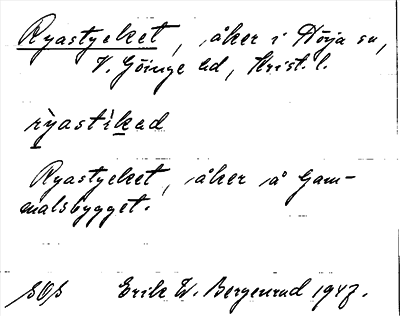 Ryastycket, åker i Hörja sn,
V. Göinge hd, Krist. l.
rỳastìkad
Ryastycket, åker å Gam-
malsbygget.
SOS Erik W. Bergenrud 1947.